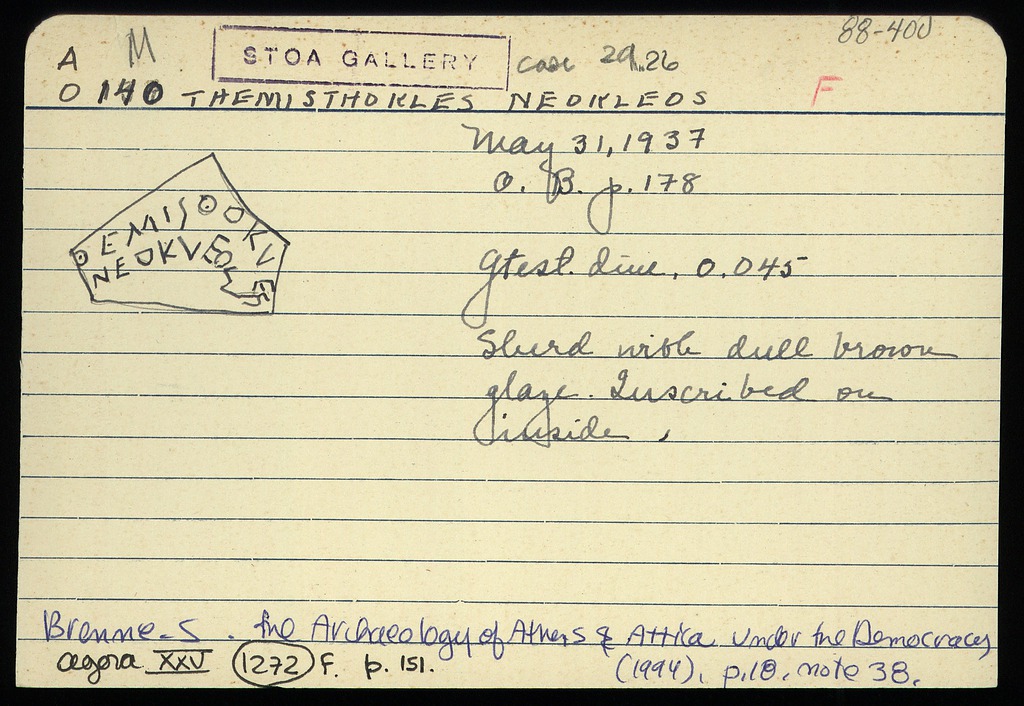 88-400
A M STOA GALLERY case 29.26
O 140 THEMISTHOKLES NEOKLEOS F
May 31, 1937
O. B. p. 178
ΘEMISΘOKV
ES
NEOKVEOS
Gtest. dim. 0.045
Sherd with dull brown
glaze. Inscribed on
inside.
Brenne-S. The Archaeology of Athens & Attica under the Democracy
(1994), p.18, note 38.
Agora XXV 1272 F. p. 151.